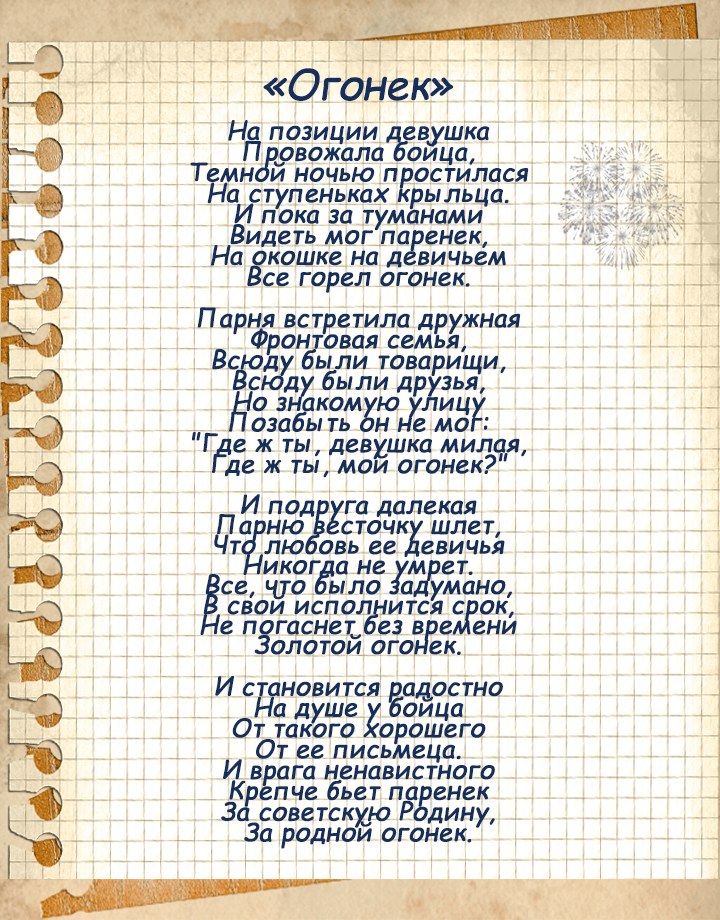 «Огонек»
На позиции девушка
Провожала бойца,
Темной ночью простилася
На ступеньках крыльца.
И пока за туманами
Видеть мог паренек,
На окошке на девичьем
Все горел огонек.
Парня встретила дружная
Фронтовая семья,
Всюду были товарищи,
Всюду были друзья,
Но знакомую улицу
Позабыть он не мог:
"Где ж ты, девушка милая,
Где ж ты, мой огонек?"
И подруга далекая
Парню весточку шлет,
Что любовь ее девичья
Никогда не умрет.
Все, что было задумано,
В свой исполнится срок,
Не погаснет без времени
Золотой огонек.
И становится радостно
На душе у бойца
От такого хорошего
От ее письмеца.
И врага ненавистного
Крепче бьет паренек
За советскую Родину,
За родной огонек.